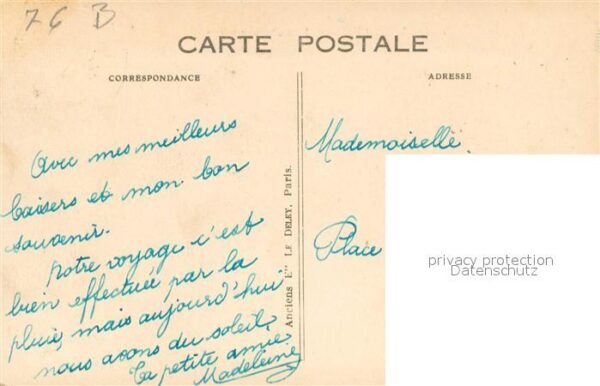 76 B
CARTE POSTALE
CORRESPONDANCE
ADRESSE
Avec mes meilleurs
baisers et mon bon
souvenir.
Notre voyage c'est
bien effectué par la
pluie, mais aujourd'hui
nous avons du soleil,
Ta petite amie
Madeleine
Anciens Ets LE DELEY, Paris.
Mademoiselle
Place
privacy protection
Datenschutz